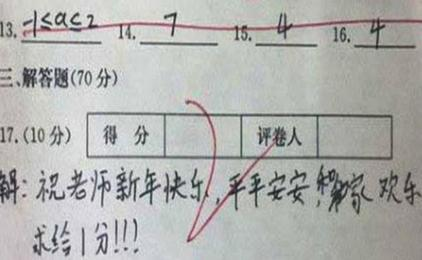 13. -1≤a≤2 14. 7 15. 4 16. 4
三、解答题(70分)
17.(10分) 得 分 评卷人
解:祝老师新年快乐,平平安安,家欢乐
求给1分!!!